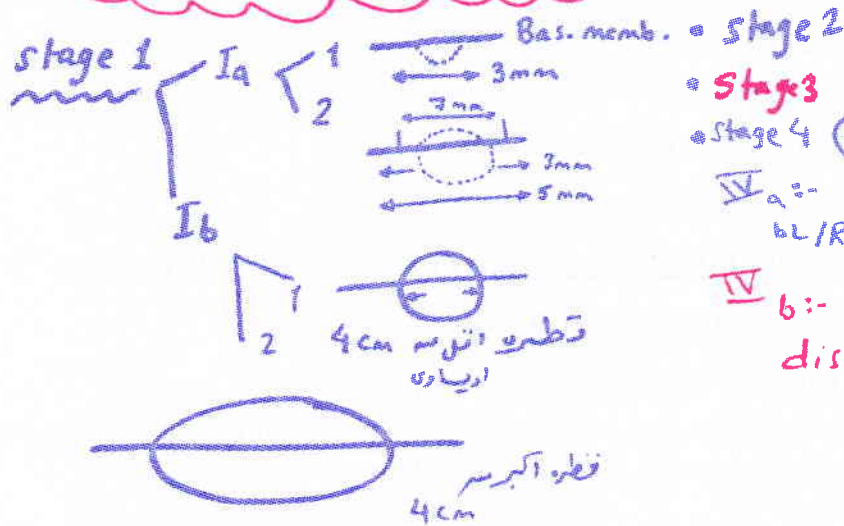 stage 1
Ia
1
2
Bas. memb.
3mm
7mm
3mm
5mm
Ib
1
2
قطره اقل من 4cm
او يساوى
قطره اكبر من
4cm
• stage 2
• Stage 3
• stage 4 (
IV a :-
bL/R
IV b :-
dis